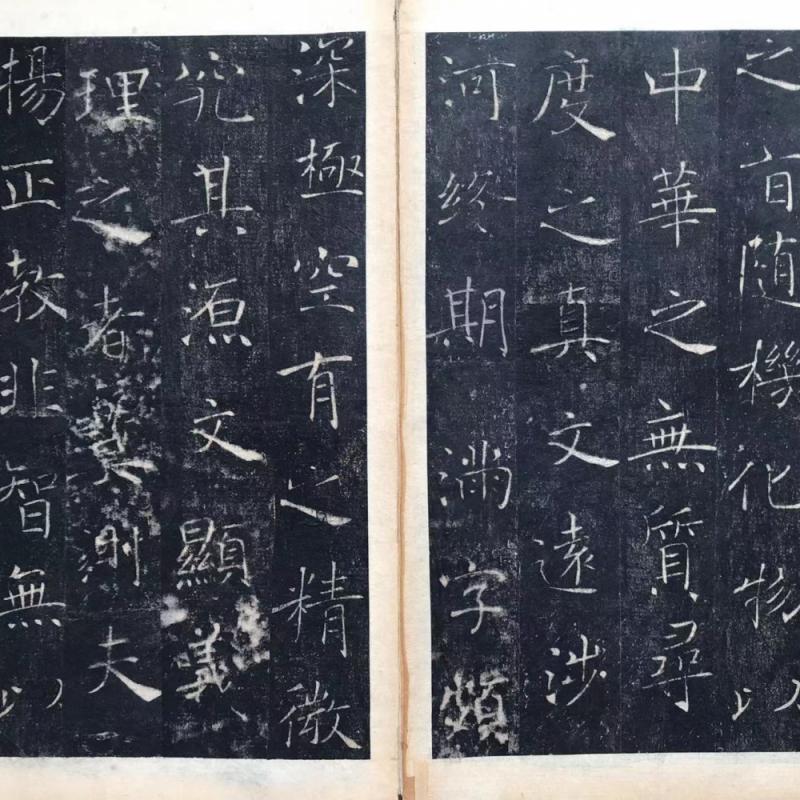 之旨随機化物以
中華之無質尋
度之真文遠涉
河終期滿字頻
深極空有之精微
究其源文顯義
理之者莫測夫
揚正教非智無以